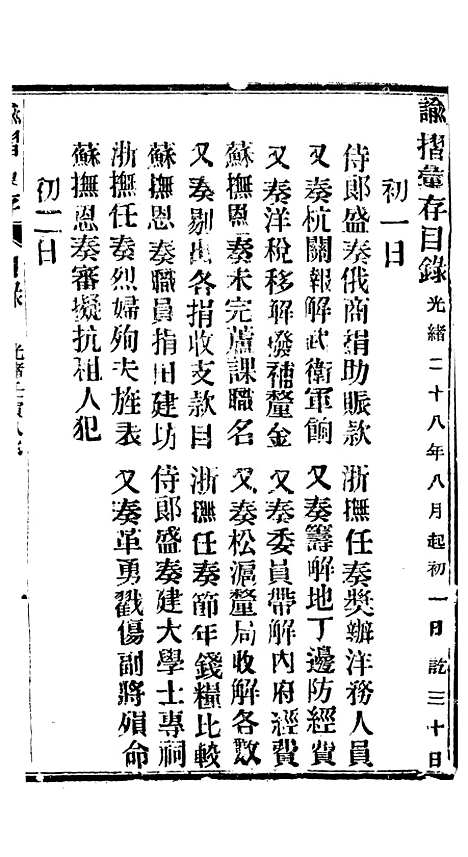 諭摺彙存目錄 光緒二十八年八月起初一日訖三十日
初一日
侍郎盛奏俄商捐助賑款 浙撫任奏獎辦洋務人員
又奏杭關報解武衛軍餉 又奏籌解地丁邊防經費
又奏洋稅移解撥補釐金 又奏委員帶解內府經費
蘇撫恩奏未完蘆課職名 又奏松滬釐局收解各數
又奏剔出各捐收支款目 浙撫任奏節年錢糧比較
蘇撫恩奏職員捐田建坊 侍郎盛奏建大學士專祠
浙撫任奏烈婦殉夫旌表 又奏革勇戳傷副將殞命
蘇撫恩奏審擬抗租人犯
初二日